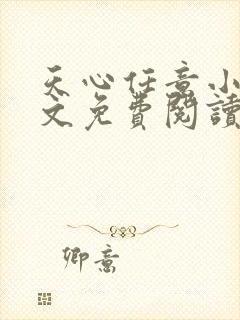 天心任意小
文免費閱讀
卿意